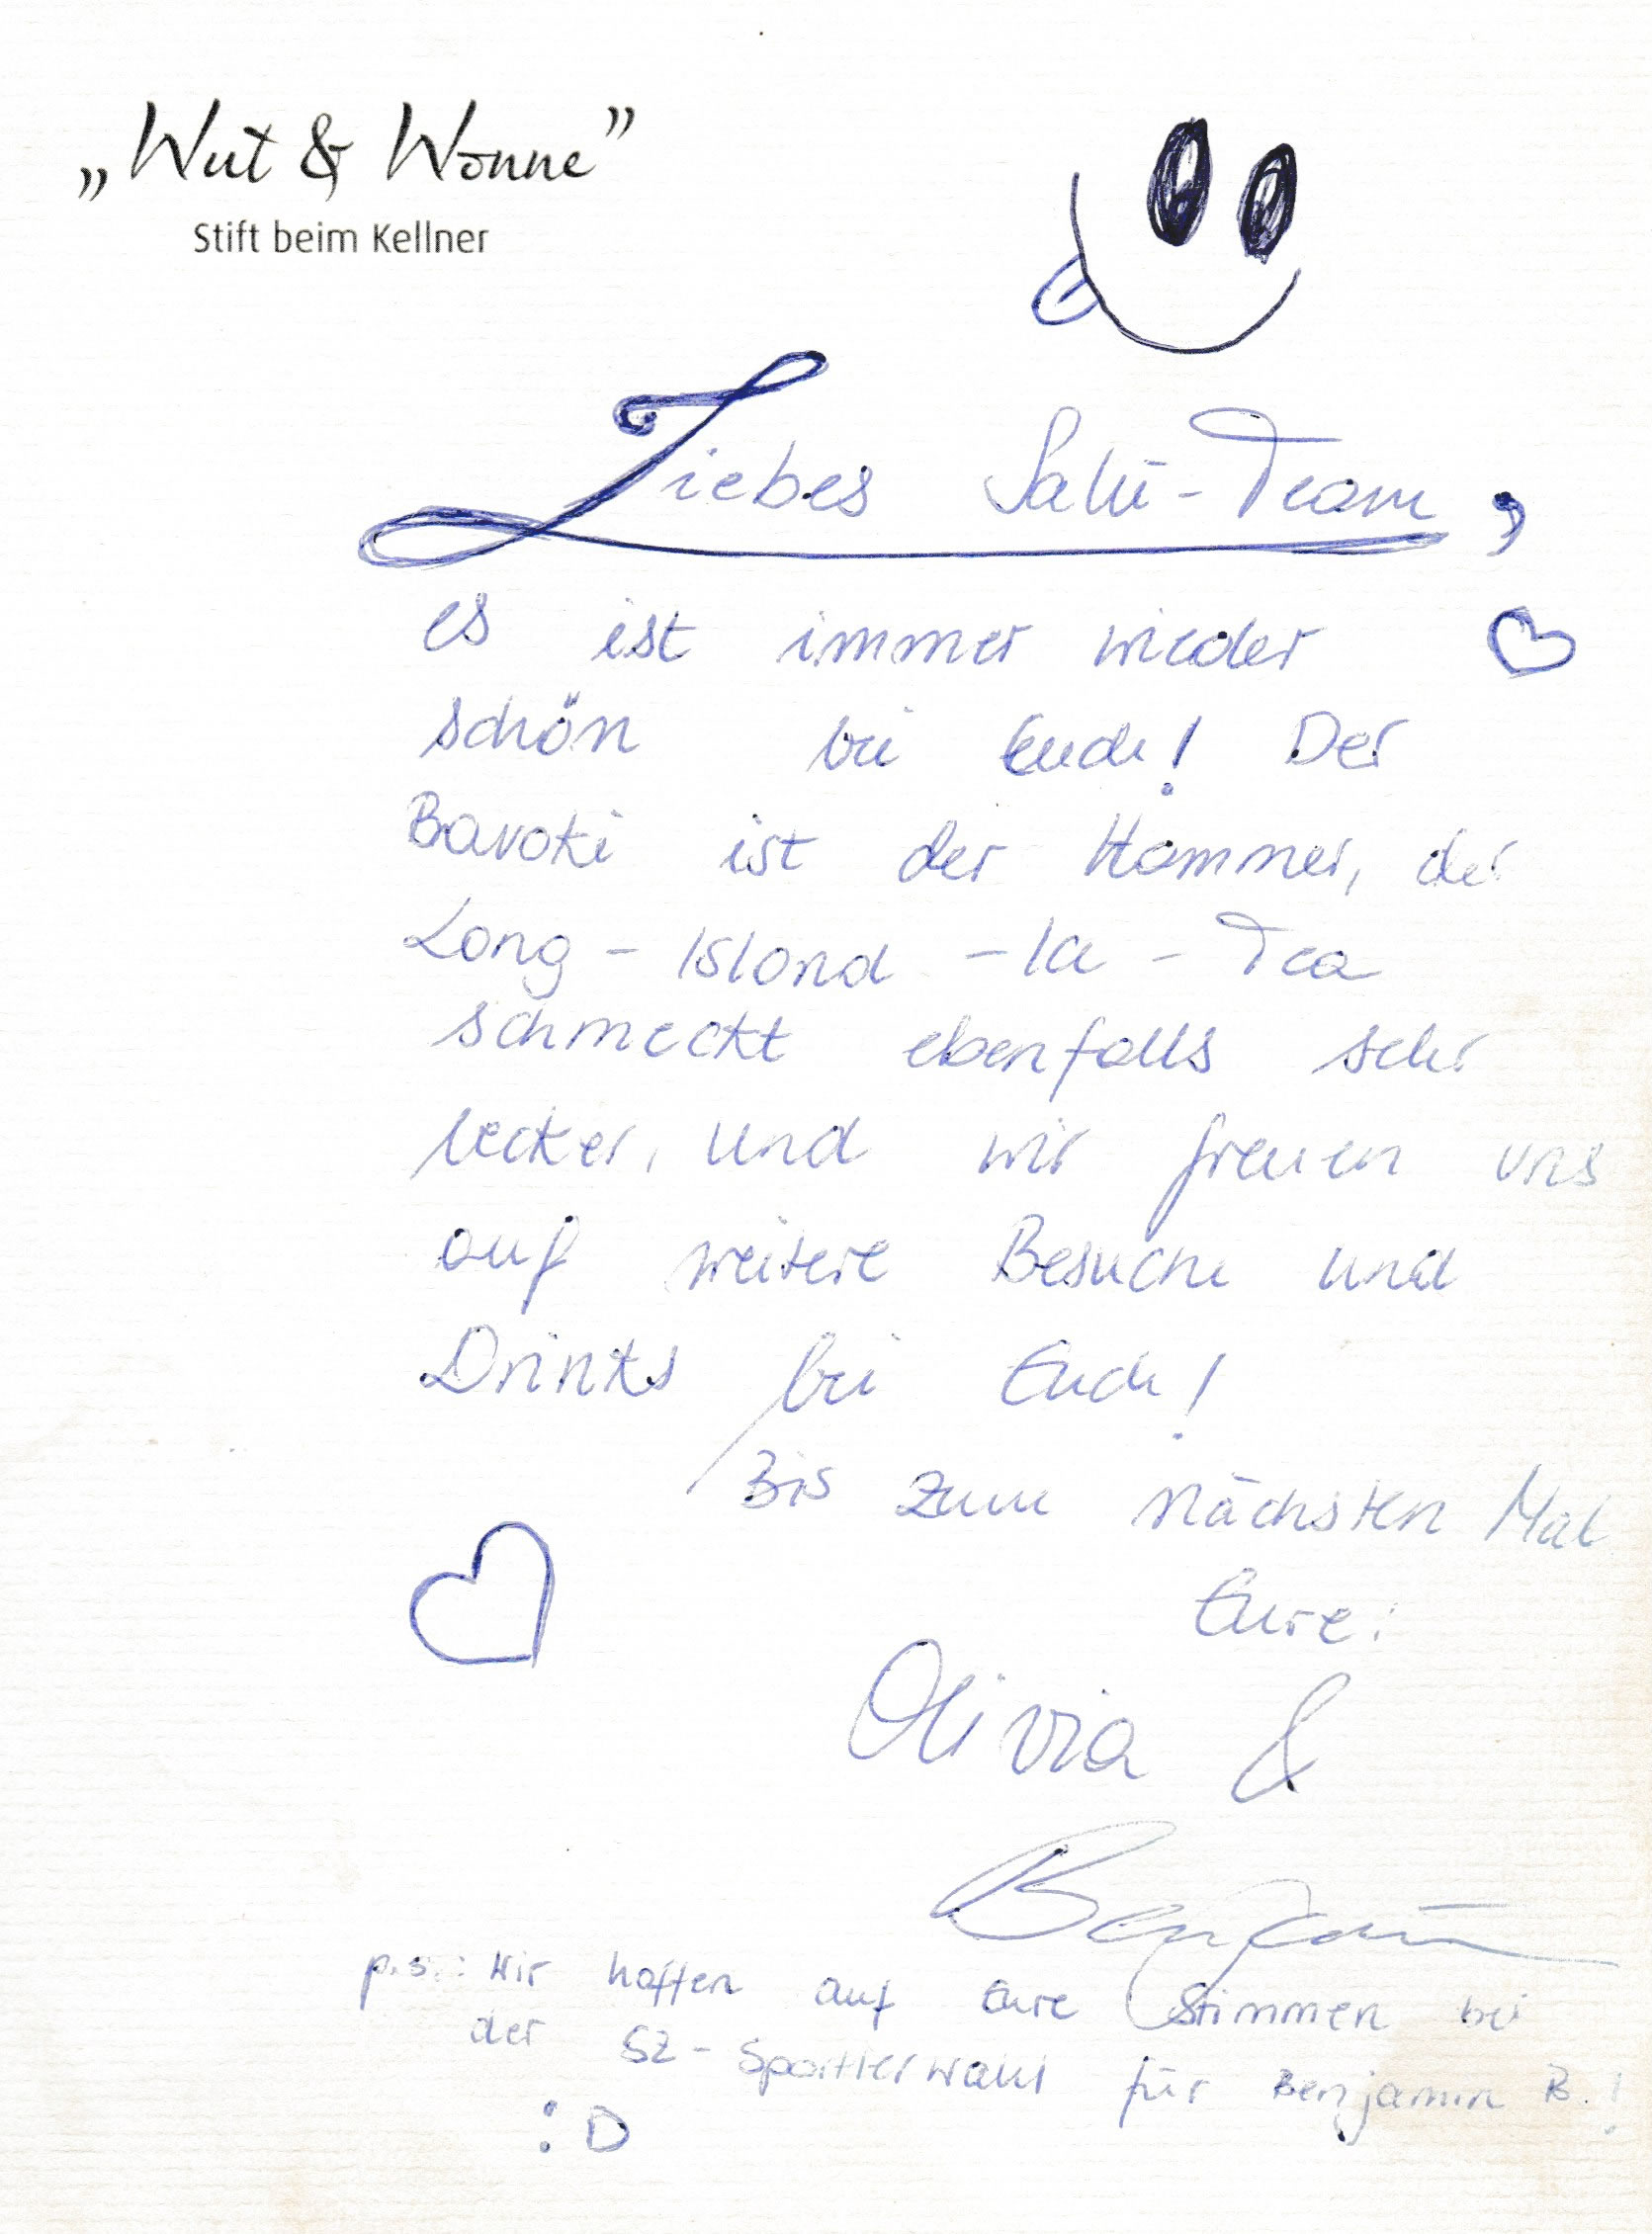 „Wut & Wonne”
Stift beim Kellner
Liebes Salü-Team,
es ist immer wieder
schön bei Euch! Der
Bavoki ist der Hammer, der
Long-Island-Ice-Tea
schmeckt ebenfalls sehr
lecker, und wir freuen uns
auf weitere Besuche und
Drinks bei Euch!
Bis zum nächsten Mal
Eure:
Olivia &
Benjamin
p.s.: Wir hoffen auf Eure Stimmen bei
der SZ-Sportlerwahl für Benjamin B.!
:D